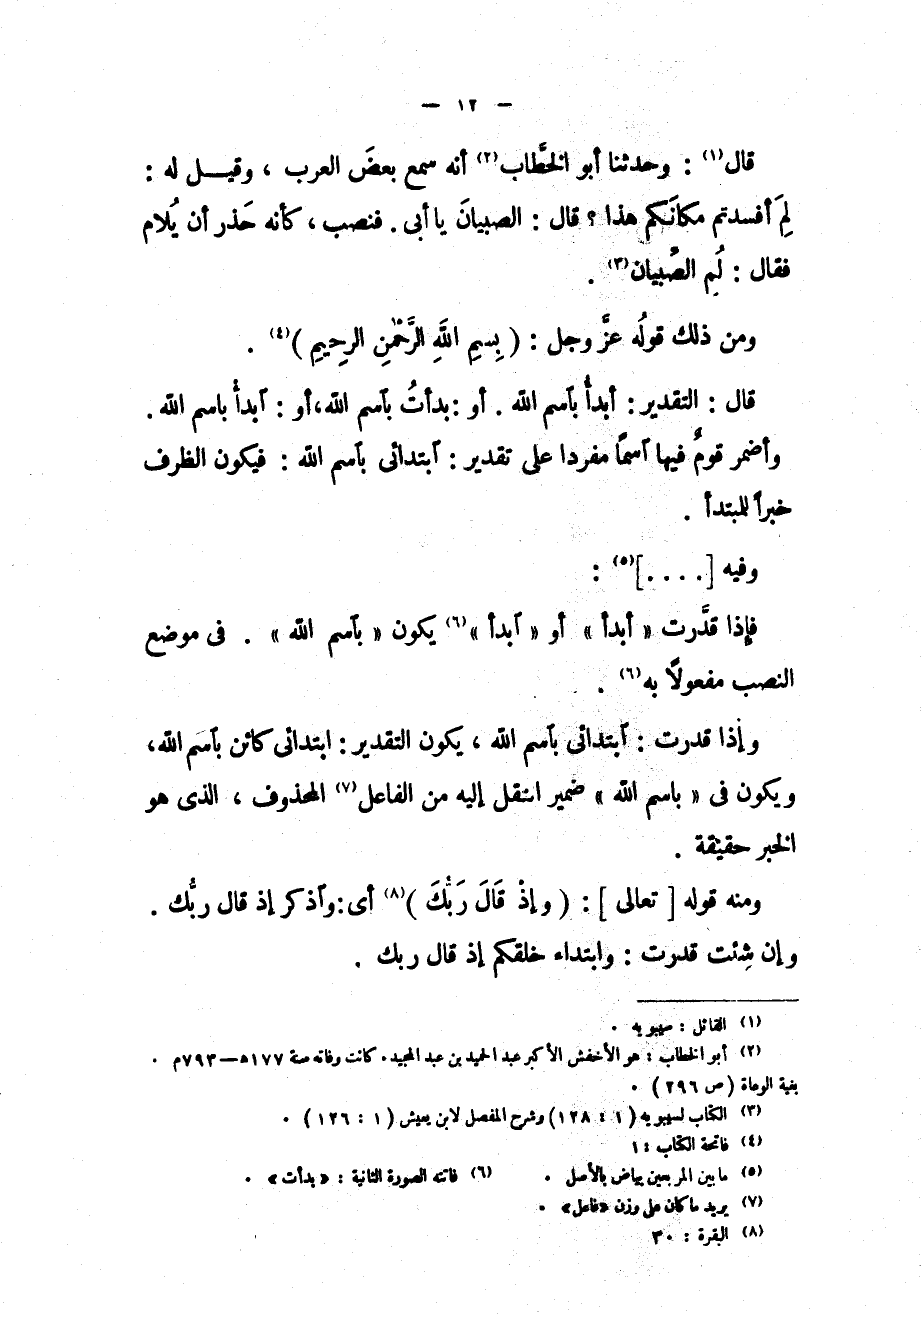 — ١٢ —
قال(١) : وحدثنا أبو الخطَّاب(٢) أنه سمع بعضَ العرب ، وقيـــل له :
لِمَ أفسدتم مكانَكم هذا ؟ قال : الصبيانَ يا أبى . فنصب ، كأنه حَذر أن يُلام
فقال : لُمِ الصِّبيان(٣) .
ومن ذلك قولُه عزَّ وجل : ( بِسمِ اللَّهِ الرَّحْمٰنِ الرحِيمِ )(٤) .
قال : التقدير : أبدأُ بٱسم الله . أو : بدأتُ بٱسم الله، أو : ٱبدأْ باسم الله .
وأضمر قومٌ فيها ٱسمًا مفردا على تقدير : ٱبتدائى بٱسم الله : فيكون الظرف
خبراً للمبتدأ .
وفيه [ . . . . ](٥) :
فإذا قدَّرت « أبدأ » أو « ٱبدأ »(٦) يكون « بٱسم الله » . فى موضع
النصب مفعولًا به(٦) .
وإذا قدرت : ٱبتدائى بٱسم الله ، يكون التقدير : ابتدائى كائن بٱسم الله،
ويكون فى « باسم الله » ضمير انتقل إليه من الفاعل(٧) المحذوف ، الذى هو
الخبر حقيقة .
ومنه قوله [ تعالى ] : ( وإذْ قَالَ رَبُّكَ )(٨) أى : وٱذكر إذ قال ربُّك .
وإن شِئت قدرت : وابتداء خلقكم إذ قال ربك .
(١) القائل : سيبويه .
(٢) أبو الخطاب : هو الأخفش الأكبر عبد الحميد بن عبد المجيد . كانت وفاته سنة ١٧٧ﻫ—٧٩٣م .
بغية الوعاة (ص ٢٩٦) .
(٣) الكتاب لسيبويه ( ١ : ١٢٨) وشرح المفصل لابن يعيش ( ١ : ١٢٦ ) .
(٤) فاتحة الكتاب : ١
(٥) ما بين المربعين بياض بالأصل . (٦) فاتته الصورة الثانية : « بدأت » .
(٧) يريد ما كان على وزن «فاعل» .
(٨) البقرة : ٣٠